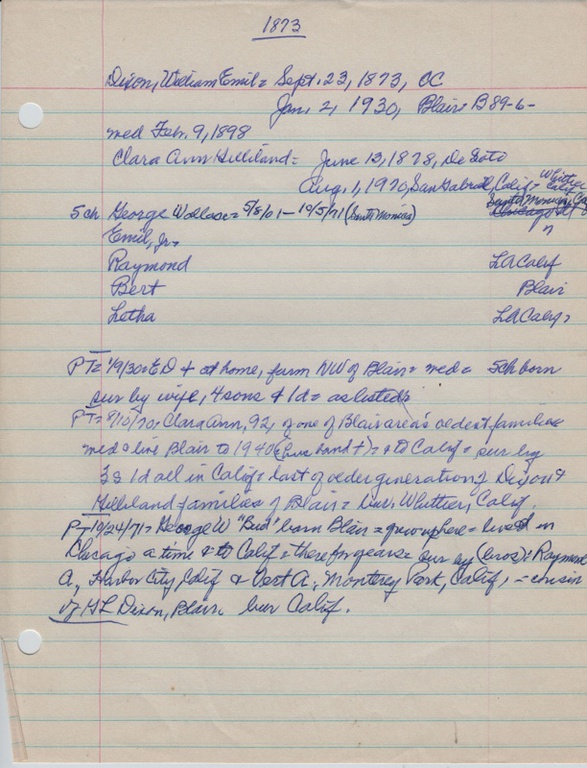 1873
Dixon, William Emil = Sept. 23, 1873, OC
Jan. 2, 1930, Blair = B89-6-
med Feb. 9, 1898
Clara Ann Hilliland = June 12, 1878, De Soto
Aug. 1, 1970, San Gabriel, Calif = Whittier Calif
5 ch George Wallace = 5/8/01 - 10/5/71 (Santa Monica) Santa Monica, Ca
Emil, Jr.
Raymond LA Calif
Bert Blair
Letha LA Calif
PT = 1/9/30 = ED + at home, farm NW of Blair = med = 5 ch born
sur by wife, 4 sons & 1 d = as listed
PT = 9/10/70, Clara Ann, 92, of one of Blair area's oldest families
med & live Blair to 1940 (husband +) = + to Calif = sur by
3 s 1 d all in Calif = last of older generation of Dixon &
Hilliland families of Blair = bur. Whittier, Calif.
PT 10/24/71 = George W "Bud" born Blair = grew up here = lived in
Chicago a time & to Calif = there for years = sur by (bros) = Raymond
A, Harbor City, Calif & Bert A, Monterey Park, Calif, - cousin
of M L Dixon, Blair. bur Calif.